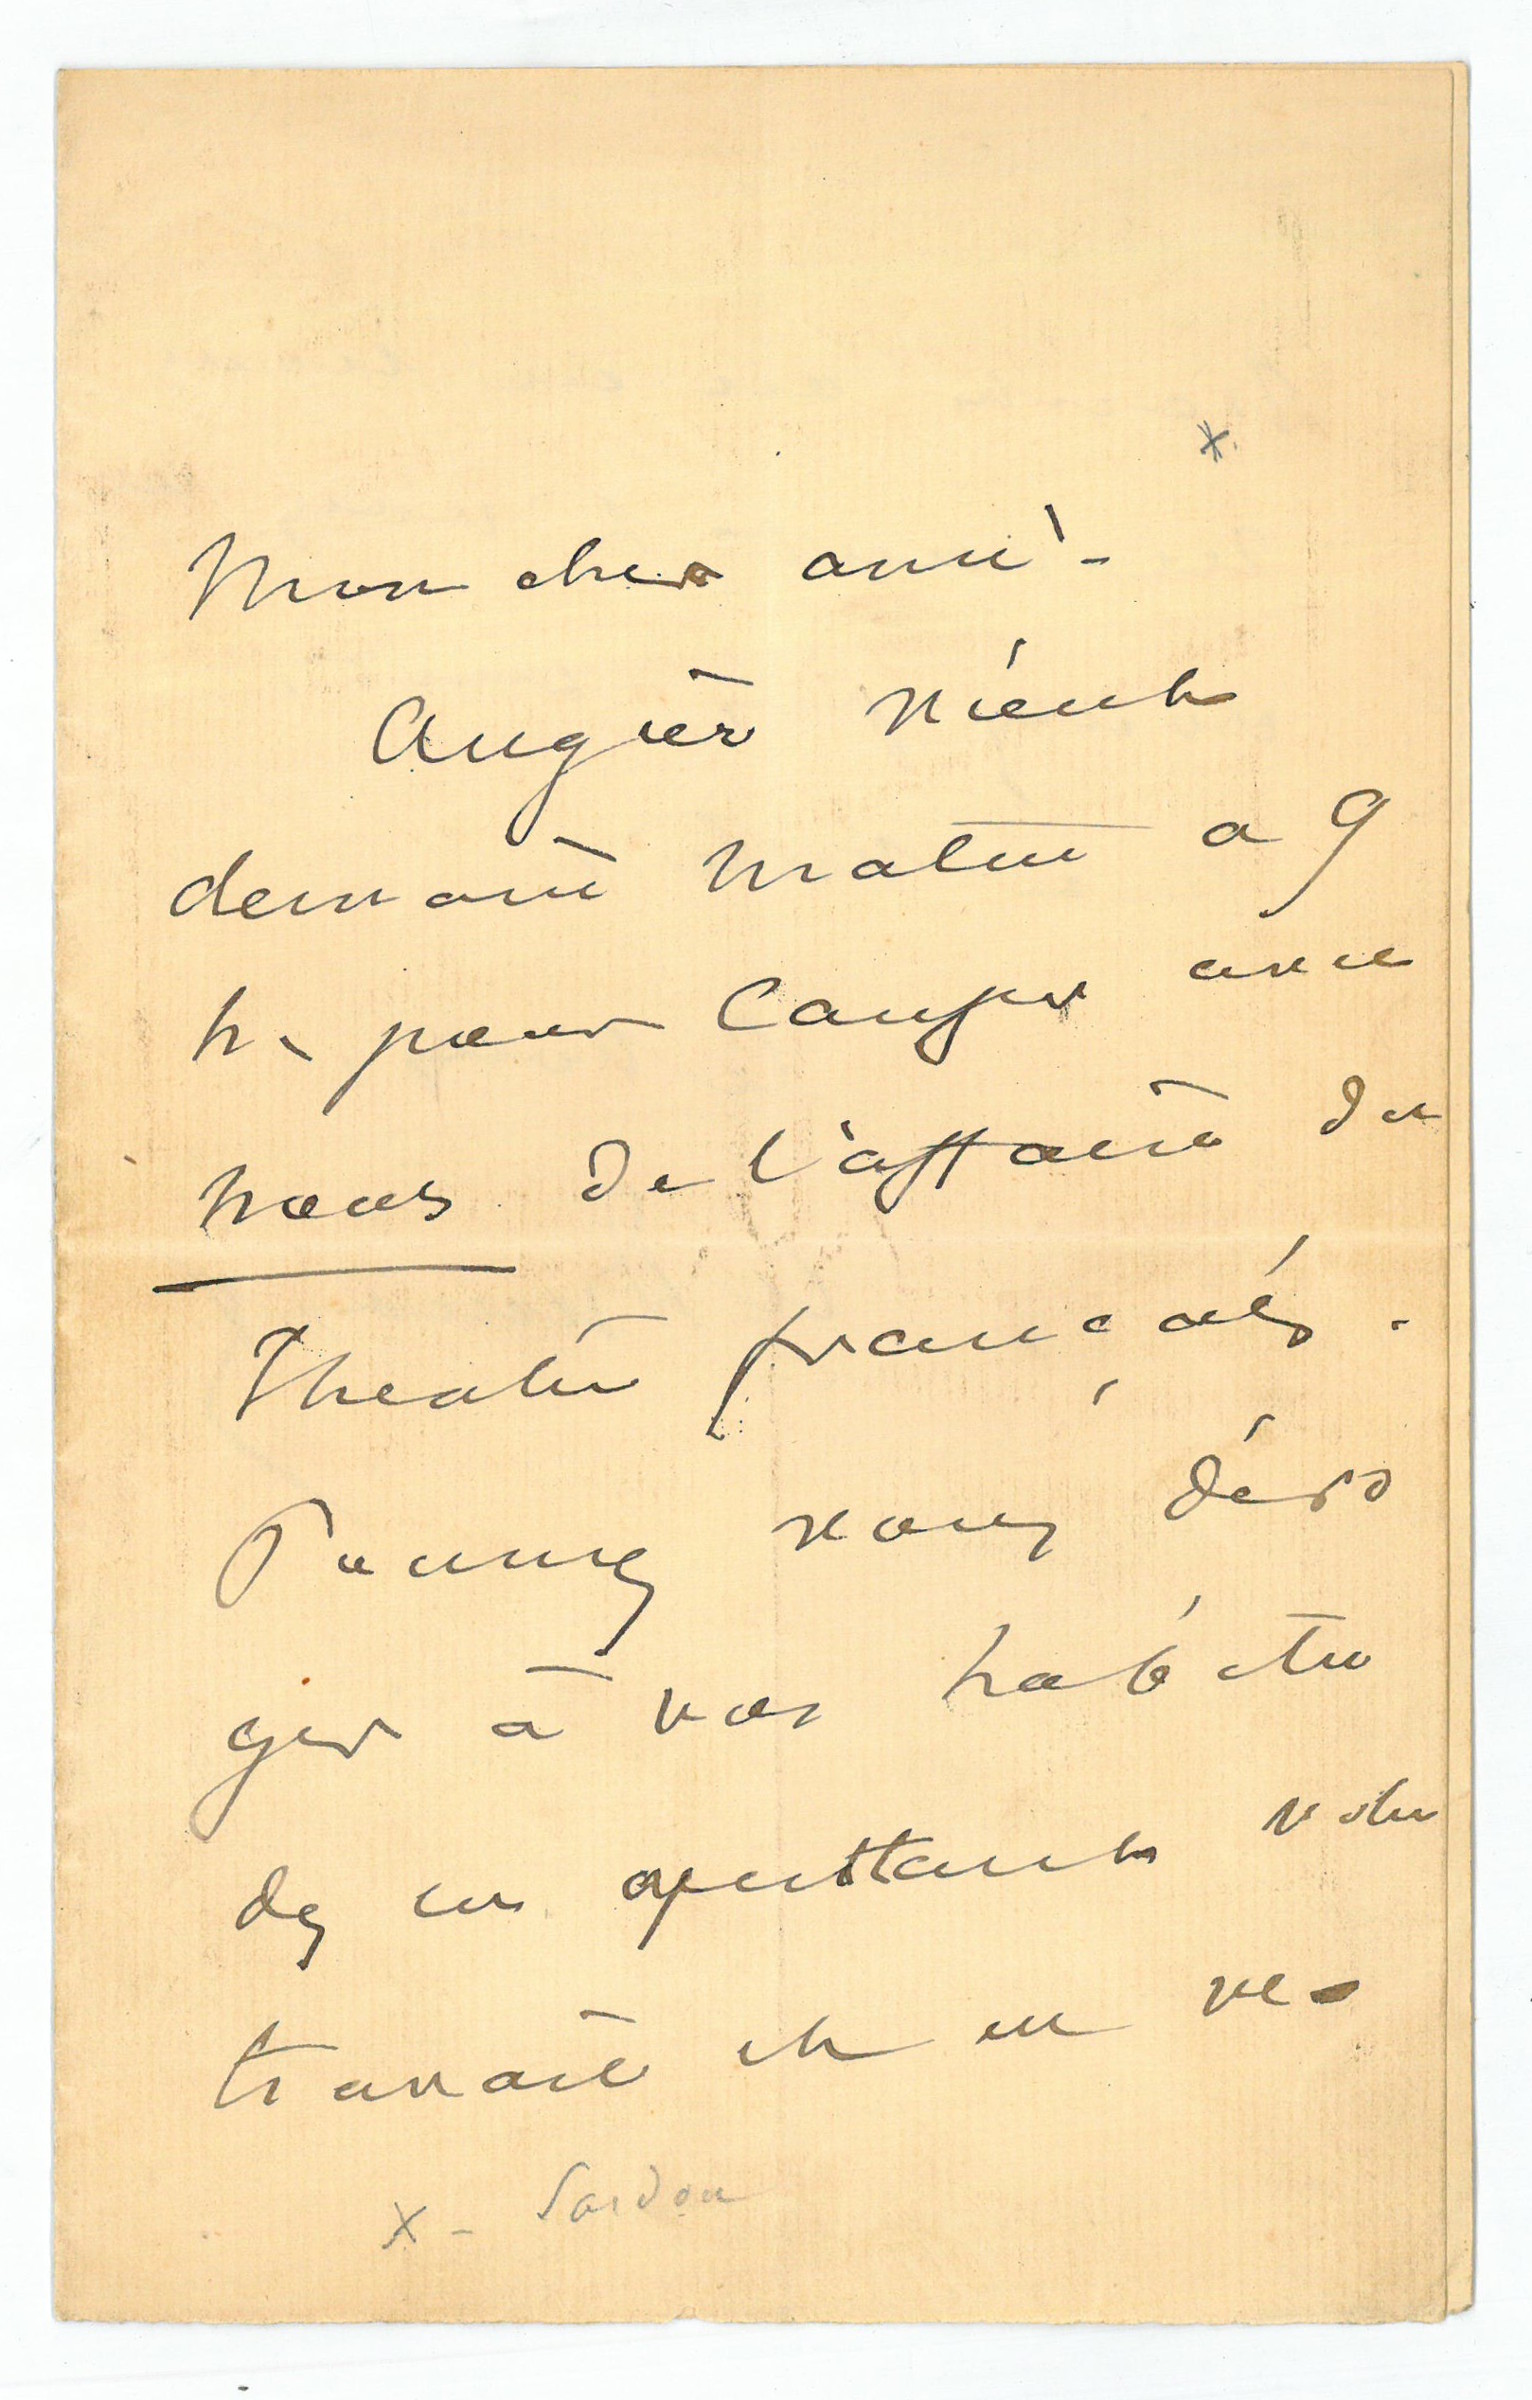 *
Mon cher ami -
Augier vient
demain matin a 9
h. pour causer avec
nous de l'affaire du
Theatre français.
Pouvez vous déro
ger à vos habitu
des en quittant votre
travail et en ve-
x - Sardou